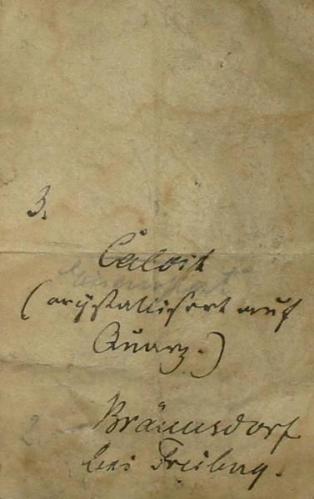 3.
Calcit
(crÿstallisert auf
Quarz.)
2.
Bräunsdorf
bei Freibug.